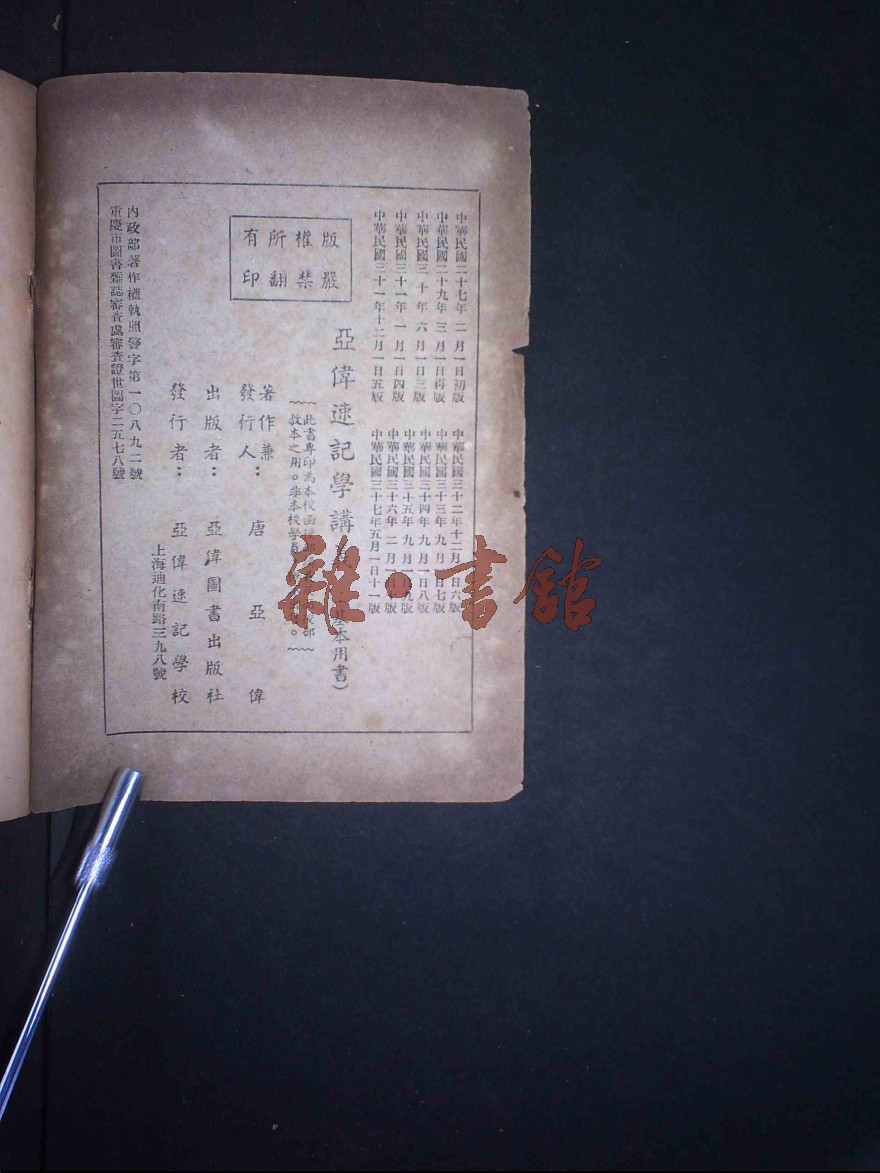 中華民國二十七年二月一日初版
中華民國二十九年三月一日再版
中華民國三十年六月一日三版
中華民國三十一年一月一日四版
中華民國三十一年十二月一日五版
中華民國三十二年十二月 日六版
中華民國三十三年九月 日七版
中華民國三十四年九月一日八版
中華民國三十五年九月一日九版
中華民國三十六年二月一日 版
中華民國三十七年五月一日十一版
版權所有
嚴禁翻印
亞偉速記學講 基本用書）
此書專印為本校函 部
教本之用。非本校學員 。
著作兼
發行人：唐亞偉
出版者：亞偉圖書出版社
發行者：亞偉速記學校
上海迪化南路三九八號
內政部著作權執照警字第一〇八九二號
重慶市圖書雜誌審查處審查證世圖字二五七八號
雜·書館